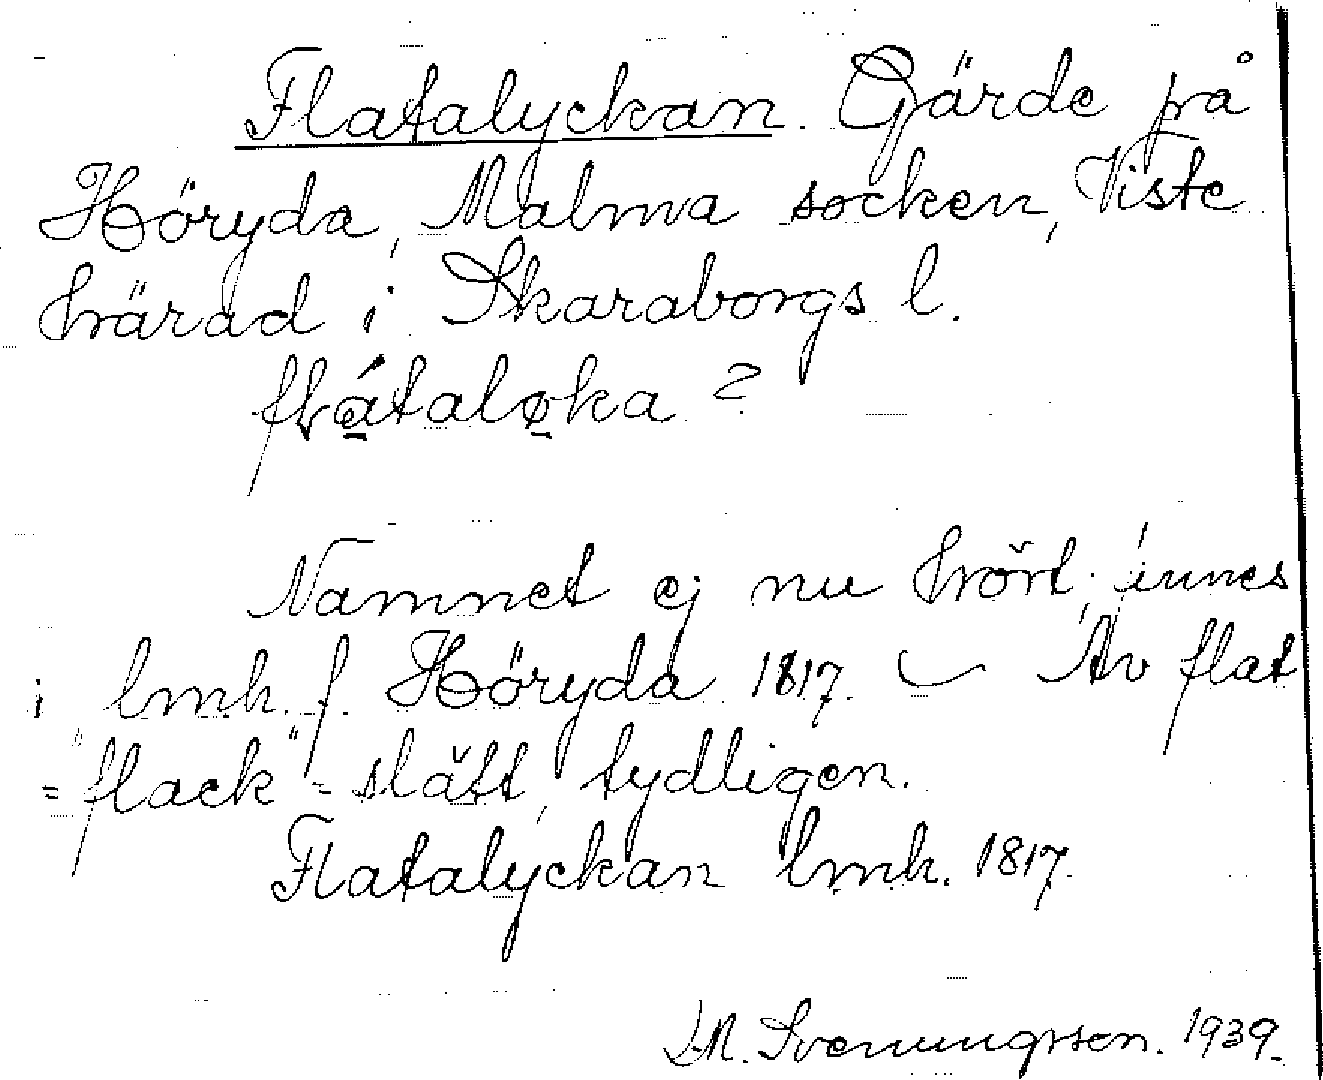 Flatalyckan. Gärde på
Höryda, Malma socken, Viste
härad i Skaraborgs l.
flátaløka ?
Namnet ej nu hört; finnes
i lmh. f. Höryda 1817. — Av flat
= "flack" - slätt, tydligen.
Flatalyckan lmh. 1817.
Svenungsson. 1939.